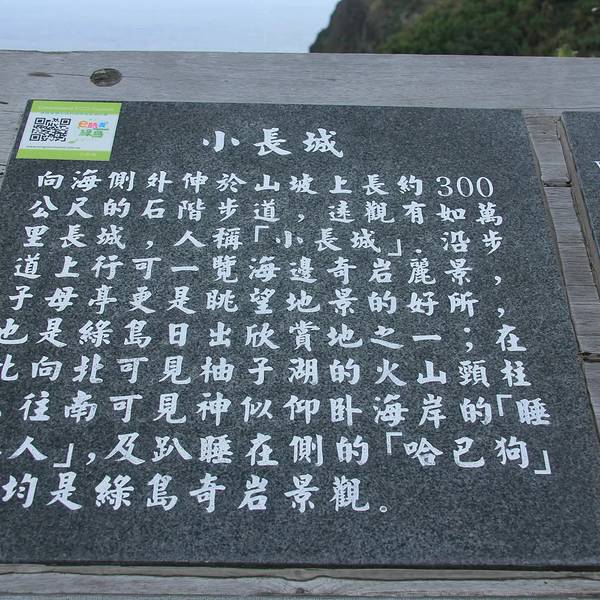 小長城
向海側外伸於山坡上長約300
公尺的石階步道，遠觀有如萬
里長城，人稱「小長城」. 沿步
道上行可一覽海邊奇岩麗景，
子母亭更是眺望地景的好所，
也是綠島日出欣賞地之一；在
北向北可見柚子湖的火山頸柱
往南可見神似仰卧海岸的「睡
人」，及趴睡在側的「哈巴狗」
均是綠島奇岩景觀。